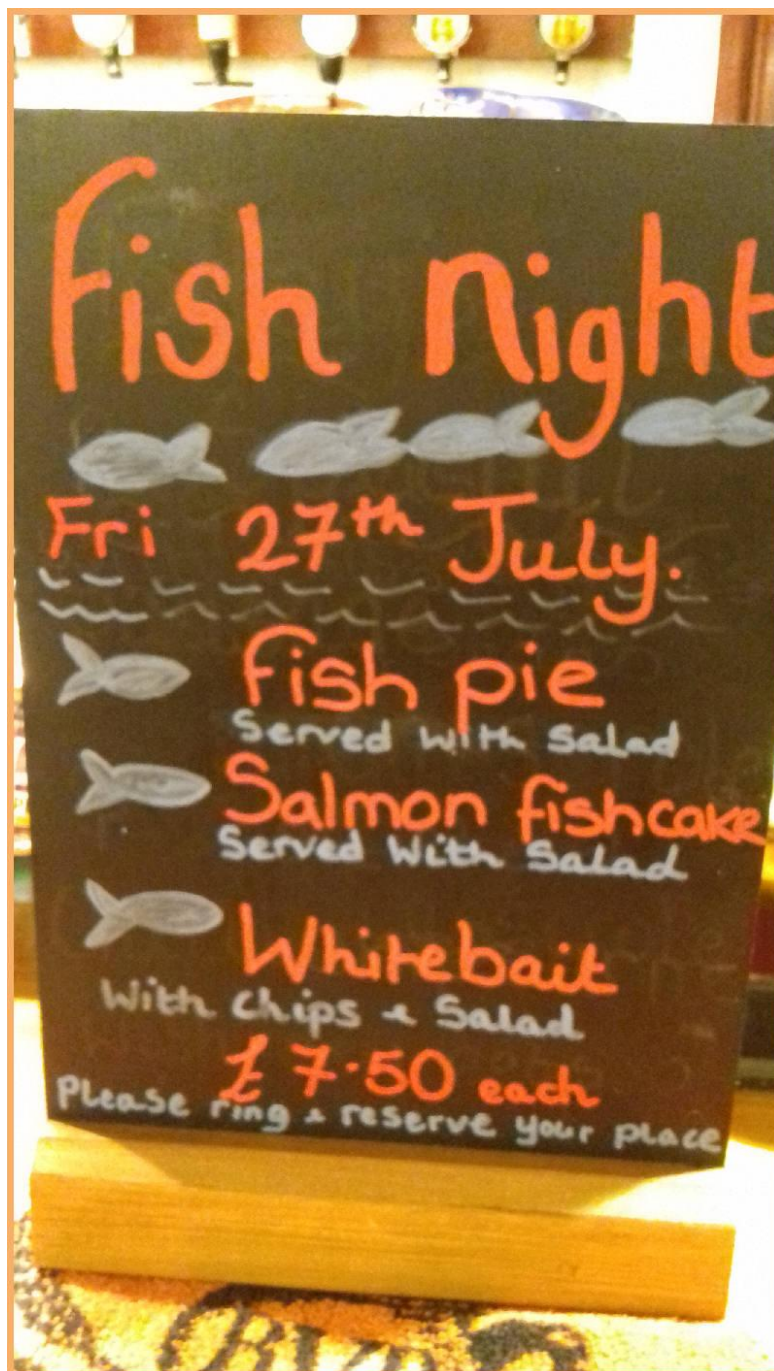 Fish Night
Fri 27th July.
Fish pie
Served with Salad
Salmon fishcake
Served With Salad
Whitebait
With Chips & Salad
£7.50 each
Please ring & reserve your place